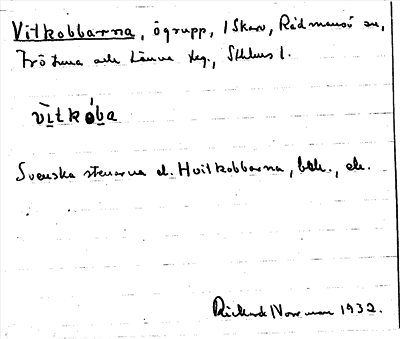 Vitkobbarna, ögrupp, i Skar, Rådmansö sn,
Frötuna och Länna skg., Sthlms l.
vìtkóba
Svenska stenarna el. Hvitkobbarna, bebl., ek.
Rickard Norrman 1932.